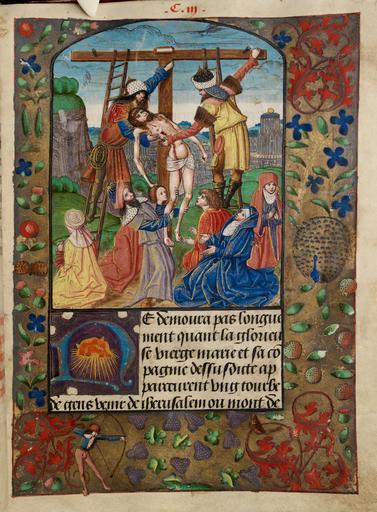 C. iii
Ne demoura pas longue
ment quant la glorieu
se vierge marie et sa co
pagnie dessusdite ap
parceurent vng tourbe
de gens venir de iherusalem ou mont de